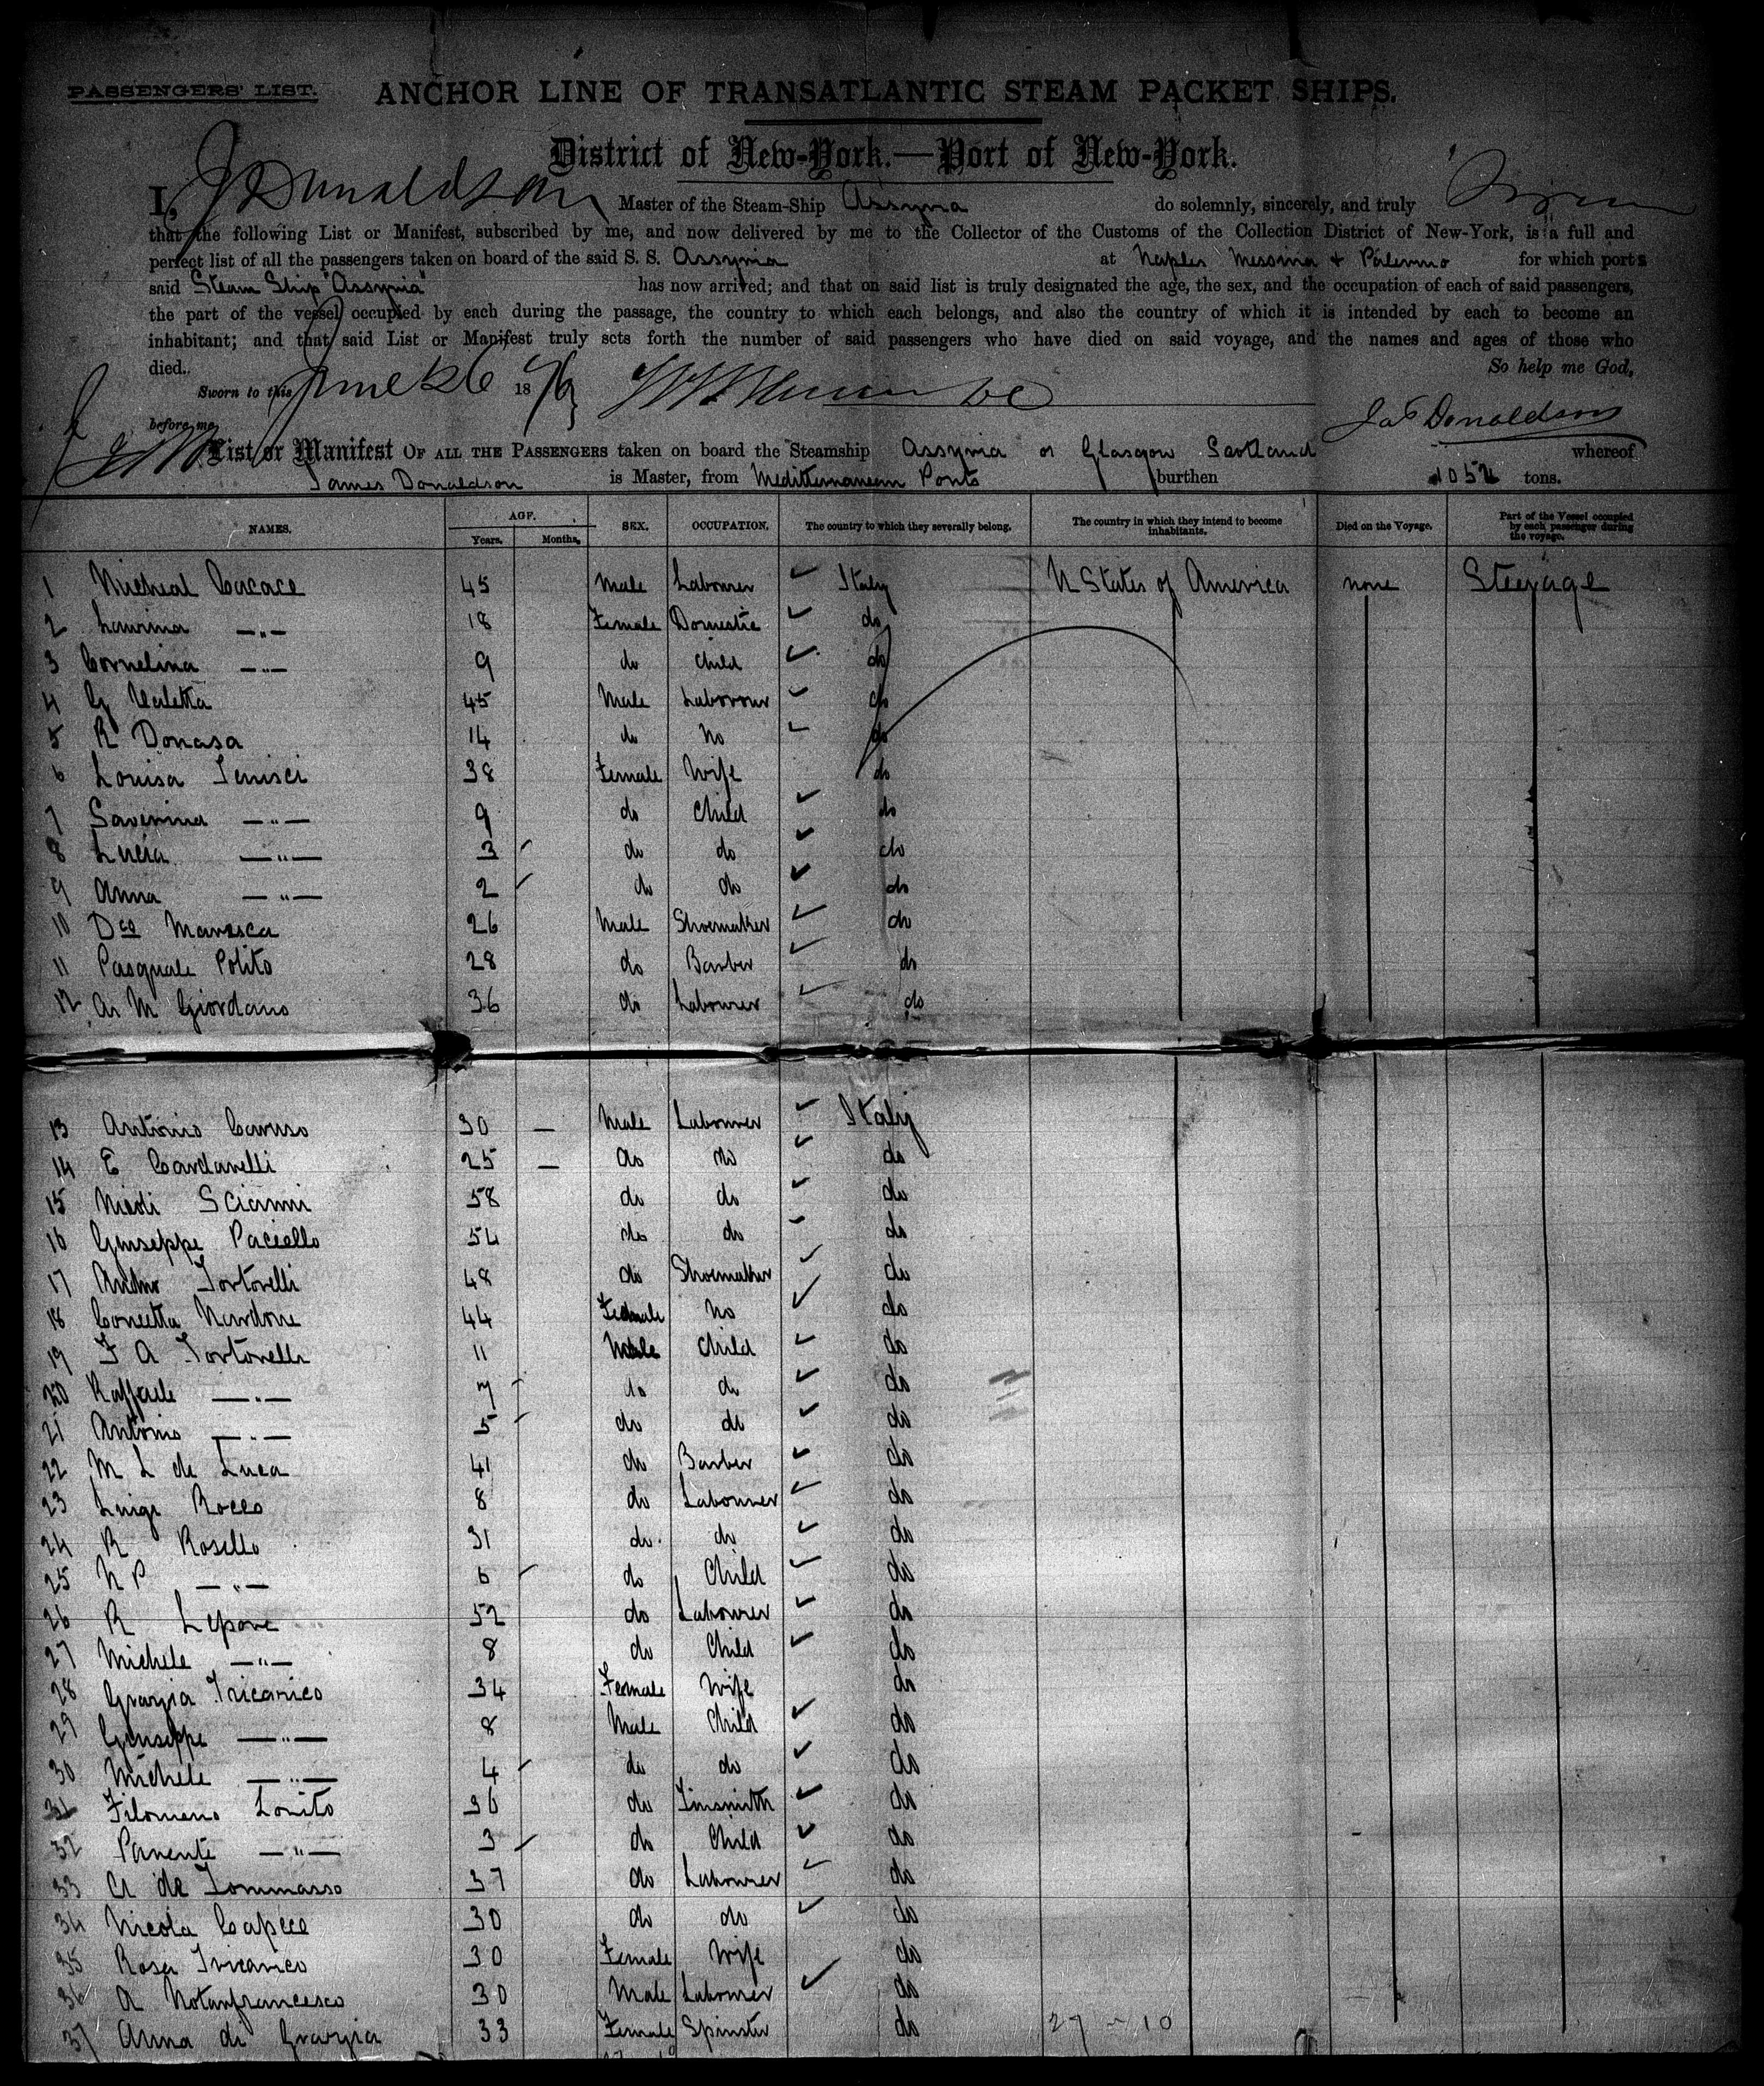 PASSENGERS' LIST.
ANCHOR LINE OF TRANSATLANTIC STEAM PACKET SHIPS.
District of New-York.—Port of New-York.
I, J Donaldson Master of the Steam-Ship Assyria do solemnly, sincerely, and truly
that the following List or Manifest, subscribed by me, and now delivered by me to the Collector of the Customs of the Collection District of New-York, is a full and
perfect list of all the passengers taken on board of the said S. S. Assyria at Naples Messina & Palermo for which ports
said Steam Ship "Assyria" has now arrived; and that on said list is truly designated the age, the sex, and the occupation of each of said passengers,
the part of the vessel occupied by each during the passage, the country to which each belongs, and also the country of which it is intended by each to become an
inhabitant; and that said List or Manifest truly sets forth the number of said passengers who have died on said voyage, and the names and ages of those who
died. So help me God,
Sworn to this June 26 18
before me Jas Donaldson
List or Manifest OF ALL THE PASSENGERS taken on board the Steamship Assyria of Glasgow Scotland whereof
James Donaldson is Master, from Mediterranean Ports burthen tons.
NAMES. AGE. Years. Months. SEX. OCCUPATION. The country to which they severally belong. The country in which they intend to become inhabitants. Died on the Voyage. Part of the Vessel occupied by each passenger during the voyage.
1 Micheal Cacace 45 Male Labourer Italy U States of America none Steerage
2 Laurina —"— 18 Female Domestic do
3 Cornelina —"— 9 do Child do
4 G Valetta 45 Male Labourer do
5 R Donasa 14 do No do
6 Louisa 38 Female Wife do
7 Saverina —"— 9 do Child do
8 Lucia —"— 3 do do do
9 Anna —"— 2 do do do
10 Dco Maresca 26 Male Shoemaker do
11 Pasquale Polito 28 do Barber do
12 A M Giordano 36 do Labourer do
13 Antonio Caruso 30 — Male Labourer Italy
14 E Cardarelli 25 — do do do
15 Scianni 58 do do do
16 Giuseppe Paciello 54 do do do
17 Tortorelli 48 do Shoemaker do
18 Concetta Nardone 44 Female No do
19 F A Tortorelli 11 Male Child do
20 Raffaele —"— 7 do do do
21 Antonio —"— 5 do do do
22 M L de Luca 41 do Barber do
23 Luigi Rocco 8 do Labourer do
24 R Rosello 31 do do do
25 N P —"— 6 do Child do
26 R Lepore 52 do Labourer do
27 Michele —"— 8 do Child do
28 Grazia Tricarico 34 Female Wife do
29 Giuseppe —"— 8 Male Child do
30 Michele —"— 4 do do do
31 Filomeno Lonito 36 do Tinsmith do
32 Parente —"— 3 do Child do
33 A de Tommasso 37 do Labourer do
34 Nicola Capece 30 do do do
35 Rosa Tricarico 30 Female Wife do
36 A Notarfrancesco 30 Male Labourer do
37 Anna di Grazia 33 Female Spinster do 27 - 10